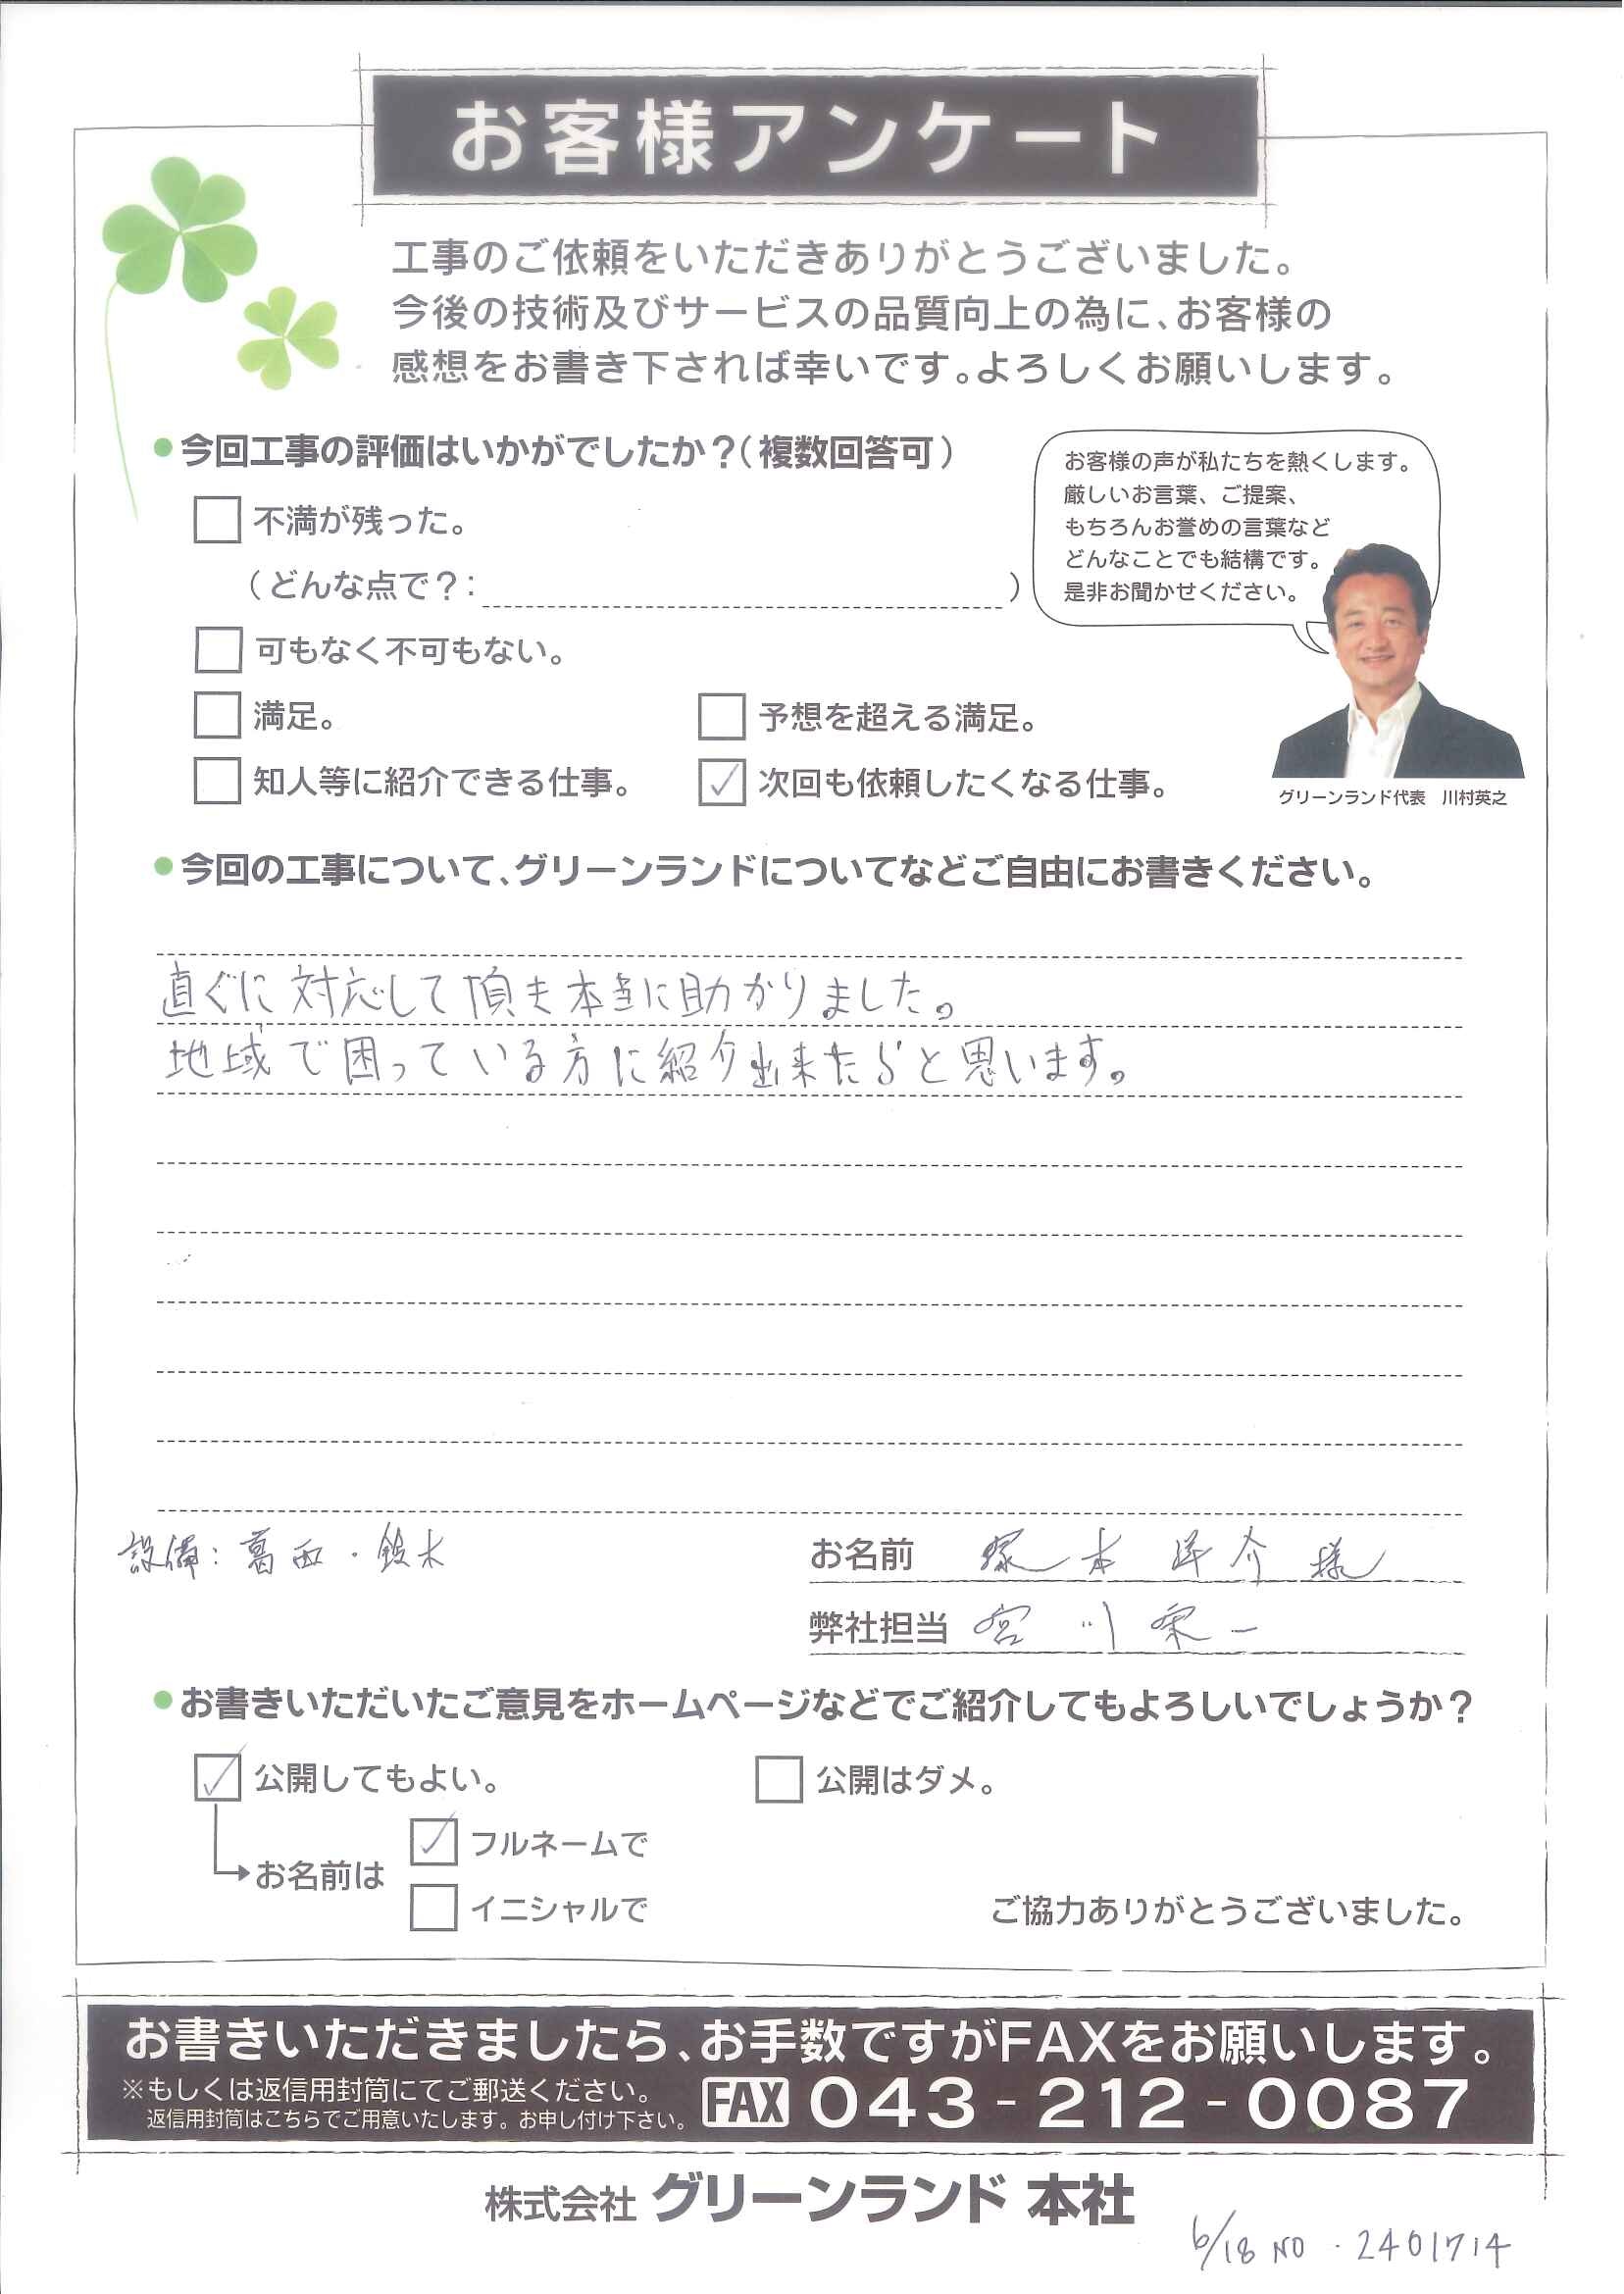 お客様アンケート
工事のご依頼をいただきありがとうございました。
今後の技術及びサービスの品質向上の為に、お客様の
感想をお書き下されば幸いです。よろしくお願いします。
●今回工事の評価はいかがでしたか？（複数回答可）
不満が残った。
（どんな点で？： ）
可もなく不可もない。
満足。 予想を超える満足。
知人等に紹介できる仕事。 ✓ 次回も依頼したくなる仕事。
お客様の声が私たちを熱くします。
厳しいお言葉、ご提案、
もちろんお誉めの言葉など
どんなことでも結構です。
是非お聞かせください。
グリーンランド代表 川村英之
●今回の工事について、グリーンランドについてなどご自由にお書きください。
直ぐに対応して頂き本当に助かりました。
地域で困っている方に紹介出来たらと思います。
設備：葛西・鈴木
お名前 塚本 洋介 様
弊社担当 宮川 栄一
●お書きいただいたご意見をホームページなどでご紹介してもよろしいでしょうか？
✓ 公開してもよい。 公開はダメ。
お名前は ✓ フルネームで
イニシャルで
ご協力ありがとうございました。
お書きいただきましたら、お手数ですがFAXをお願いします。
※もしくは返信用封筒にてご郵送ください。
返信用封筒はこちらでご用意いたします。お申し付け下さい。
FAX 043-212-0087
株式会社 グリーンランド 本社
6/18 NO.2401714